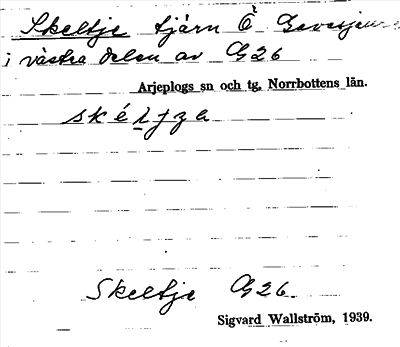 Skeltje tjärn Ö Gavasjau
i västra delen av G26
Arjeplogs sn och tg, Norrbottens län.
skéltza
Skeltje G26.
Sigvard Wallström, 1939.